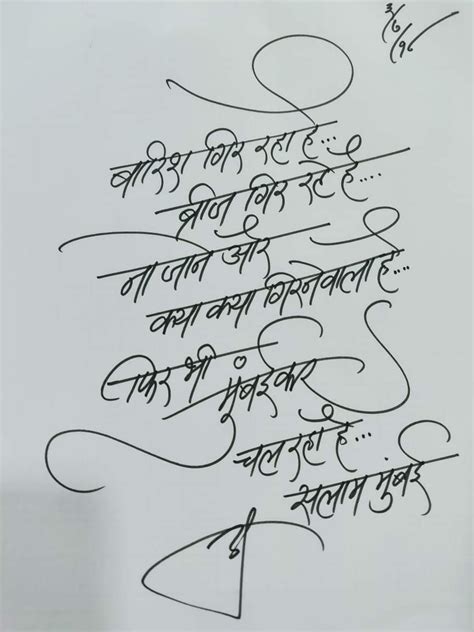 ३/७/१८
बारिश गिर रहा है...
ब्रीज गिर रहे है....
ना जाने और
क्या क्या गिरनेवाला है...
फिर भी मुंबईकर
चल रहा है...
सलाम मुंबई